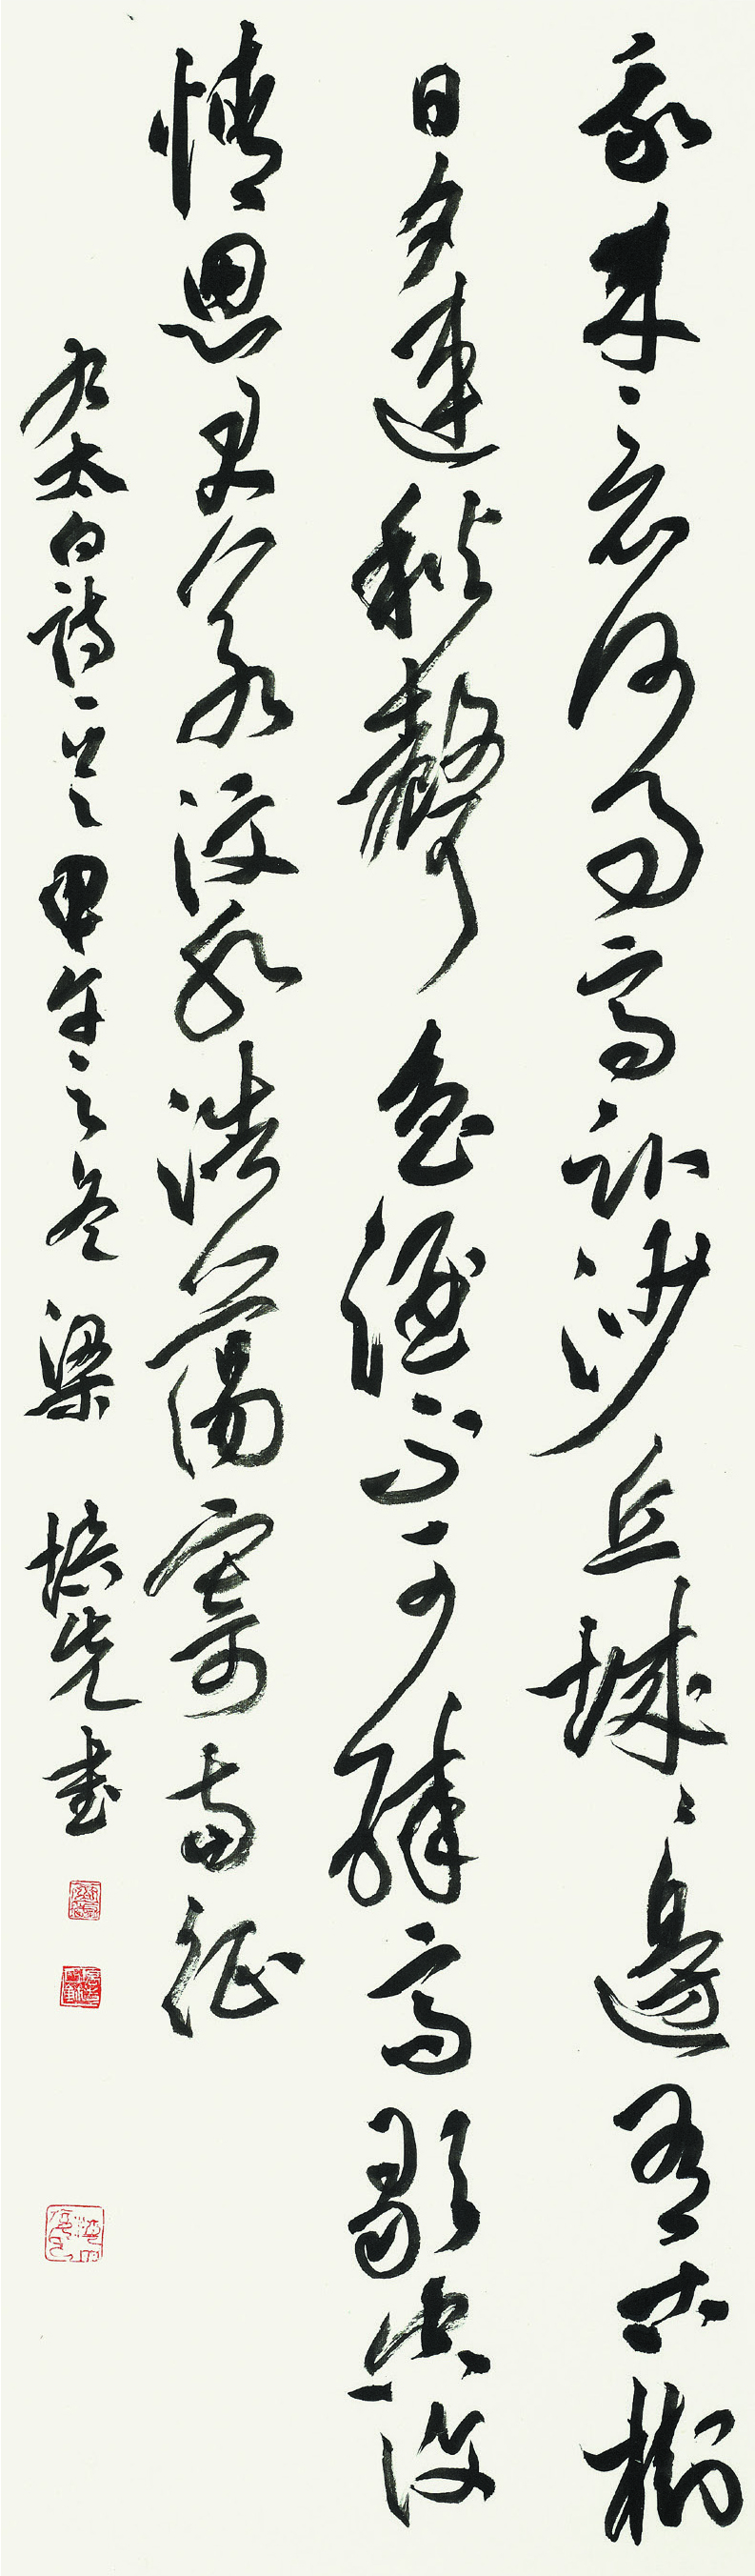 我來竟何事高臥沙丘城々邊有古樹
日夕連秋聲魯酒不可醉齊歌空復
情思君若汶水浩蕩寄南征
右太白詩一首甲午之冬梁培先書